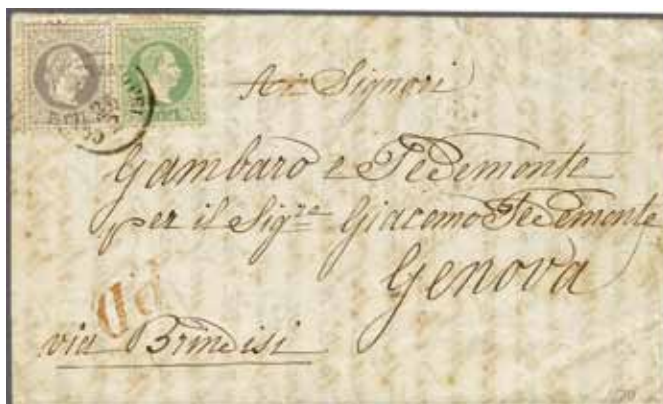 Signori
Gambaro e Pedemonte
per il Sig.re Giacomo Pedemonte
Genova
PD
via Brindisi